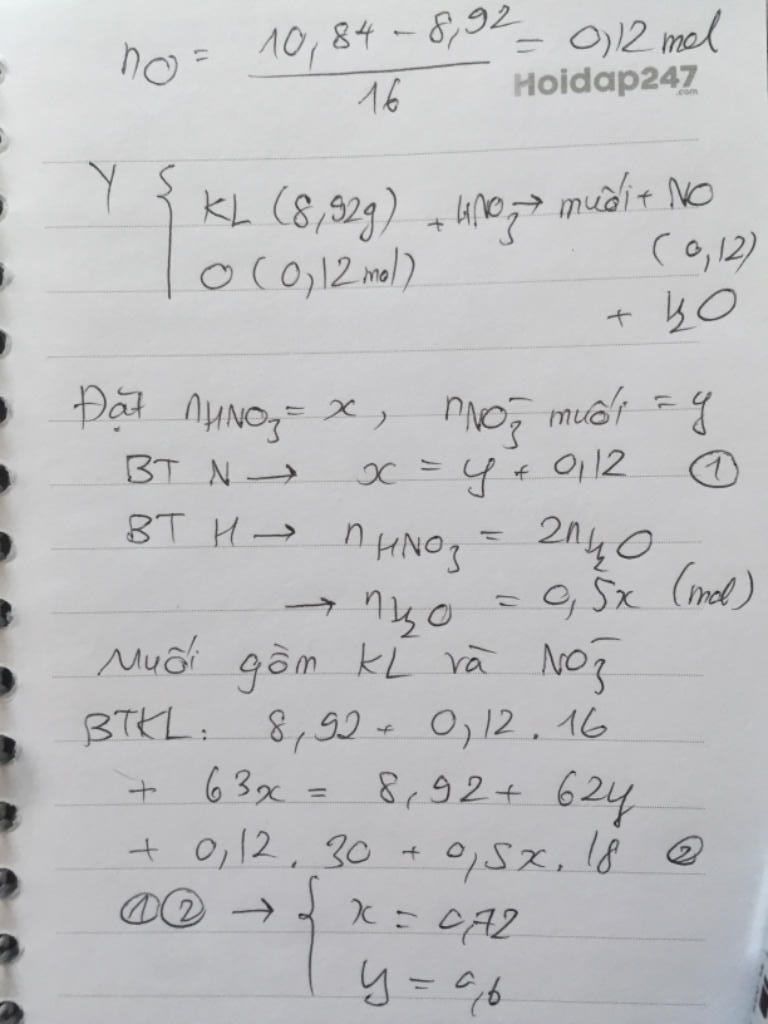 nO = 10,84 - 8,92 / 16 = 0,12 mol
Hoidap247
.com
Y { KL (8,92g) + HNO3 → muối + NO
O (0,12 mol) (0,12)
+ H2O
Đặt nHNO3 = x, nNO3- muối = y
BT N → x = y + 0,12 ①
BT H → nHNO3 = 2nH2O
→ nH2O = 0,5x (mol)
Muối gồm KL và NO3-
BTKL: 8,92 + 0,12 . 16
+ 63x = 8,92 + 62y
+ 0,12 . 30 + 0,5x . 18 ②
①② → { x = 0,72
y = 0,6